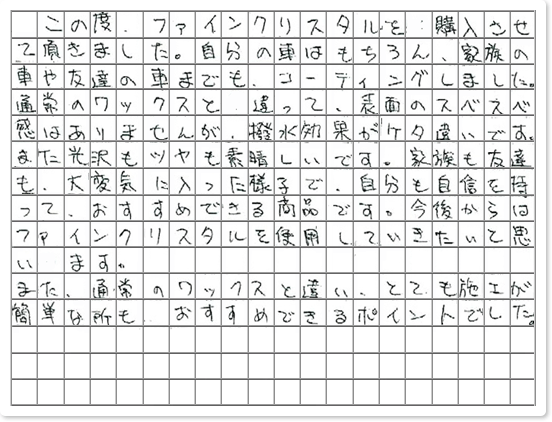 この度、ファインクリスタルを 購入させ
て頂きました。自分の車はもちろん、家族の
車や友達の車までも、コーティングしました。
通常のワックスと 違って、表面のスベスベ
感はありませんが、撥水効果がケタ違いです。
また光沢もツヤも素晴しいです。家族も友達
も、大変気に入った様子で、自分も自信を持
って、おすすめできる商品です。今後からは
ファインクリスタルを使用していきたいと思
い ます。
また、通常のワックスと違い、とても施工が
簡単な所も、おすすめできるポイントでした。